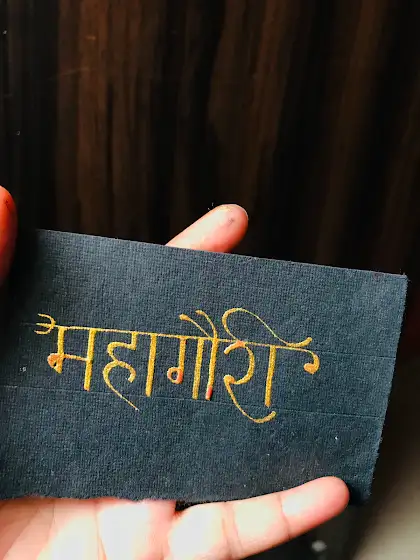 महागौरी